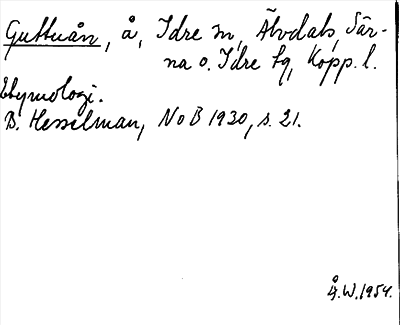 Guttuån, å, Idre sn, Älvdals, Sär-
na o. Idre tg, Kopp. l.
Etymologi.
B. Hesselman, NoB 1930, s. 21.
Å.W. 1954.